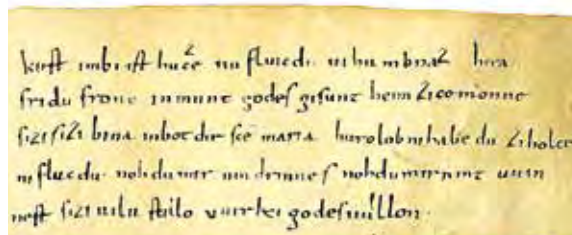 kirst imbi ist hucze nu fluic du uihu minaz hera
fridu frono in munt godes gisunt heim zi comonne
sizi sizi bina inbot dir sce maria hurolob ni habe du zi holce
ni fluc du noh du mir nindrinnes noh du mir nintuuin
nest sizi uilu stillo vuirki godes uuillon.